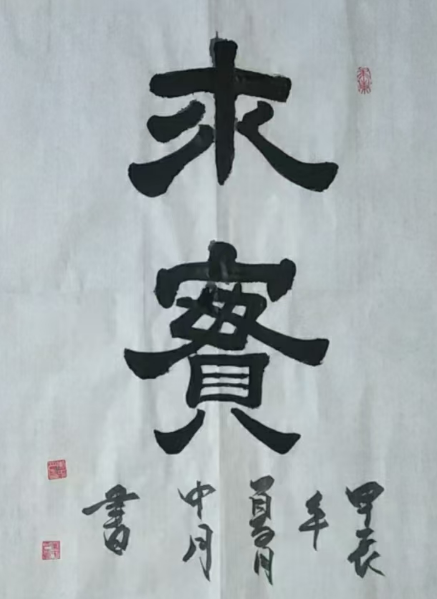 求
實
甲辰
年
夏月
中月
書